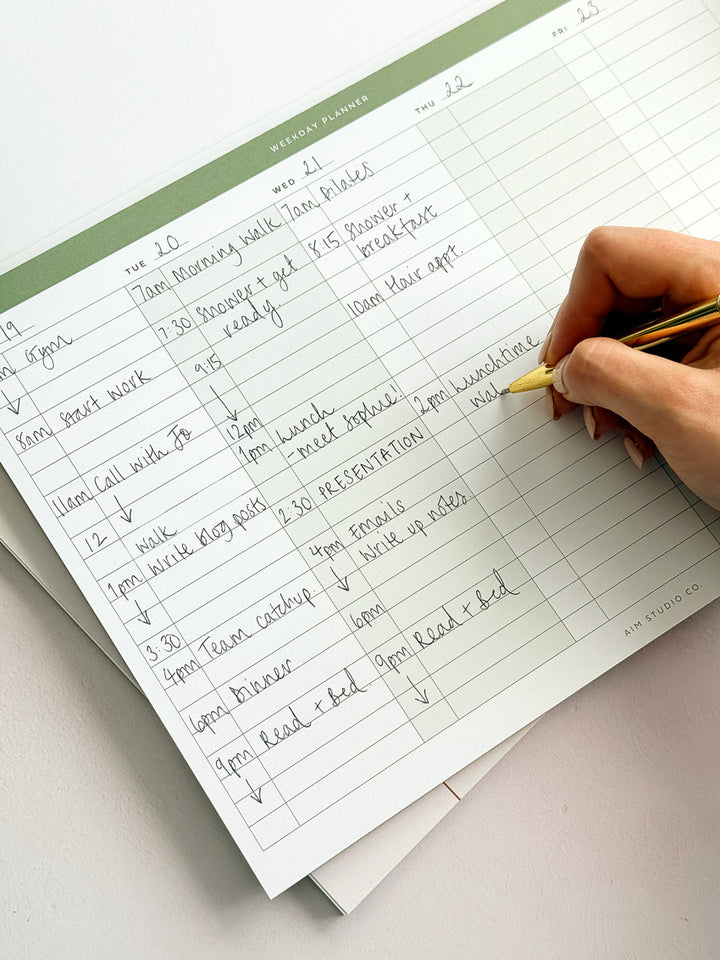 WEEKDAY PLANNER
19
Gym
↓
8am start work
11am Call with Jo
↓
12 Walk
1pm Write blog posts
↓
3:30
4pm Team catchup.
6pm Dinner
9pm Read + Bed
↓
TUE 20
7am Morning walk
7:30 Shower + get
ready.
9:15
↓
12pm
1pm Lunch
- meet Sophie!
2:30 PRESENTATION
4pm Emails
Write up notes.
↓
6pm
9pm Read + Bed
↓
WED 21
7am Pilates
8:15 Shower +
breakfast
10am Hair appt.
2pm Lunchtime
wal
THU 22
FRI 23
AIM STUDIO CO.